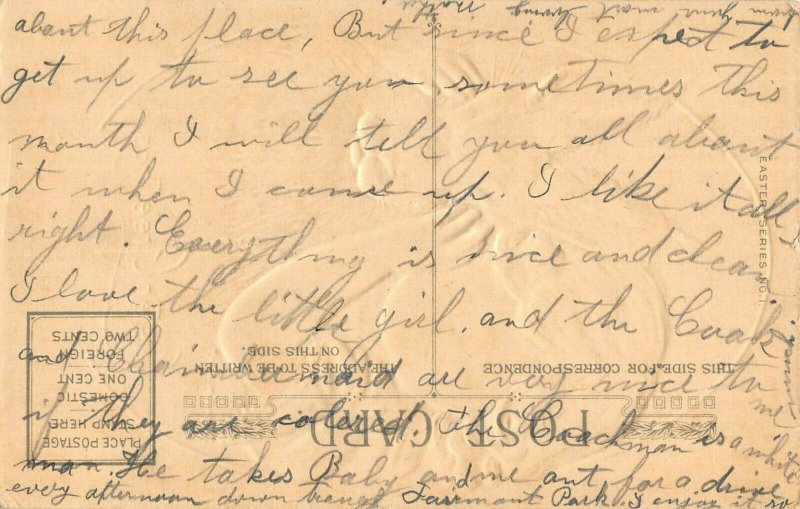 about this place, But since I expect to
get up to see you sometimes this
month I will tell you all about
it when I come up. I like it all
right. Everything is nice and clean
I love the little girl, and the Cook
and Chaimbermaid are very nice to me
if they are colored the Coachman is a white
man. He takes Baby and me out for a drive
every afternoon down Fairmount Park. I enjoy it so
from your most loving
EASTER SERIES NO. 1.
POST CARD
THIS SIDE FOR CORRESPONDENCE
THE ADDRESS TO BE WRITTEN
ON THIS SIDE.
PLACE POSTAGE
STAMP HERE
DOMESTIC
ONE CENT
FOREIGN
TWO CENTS